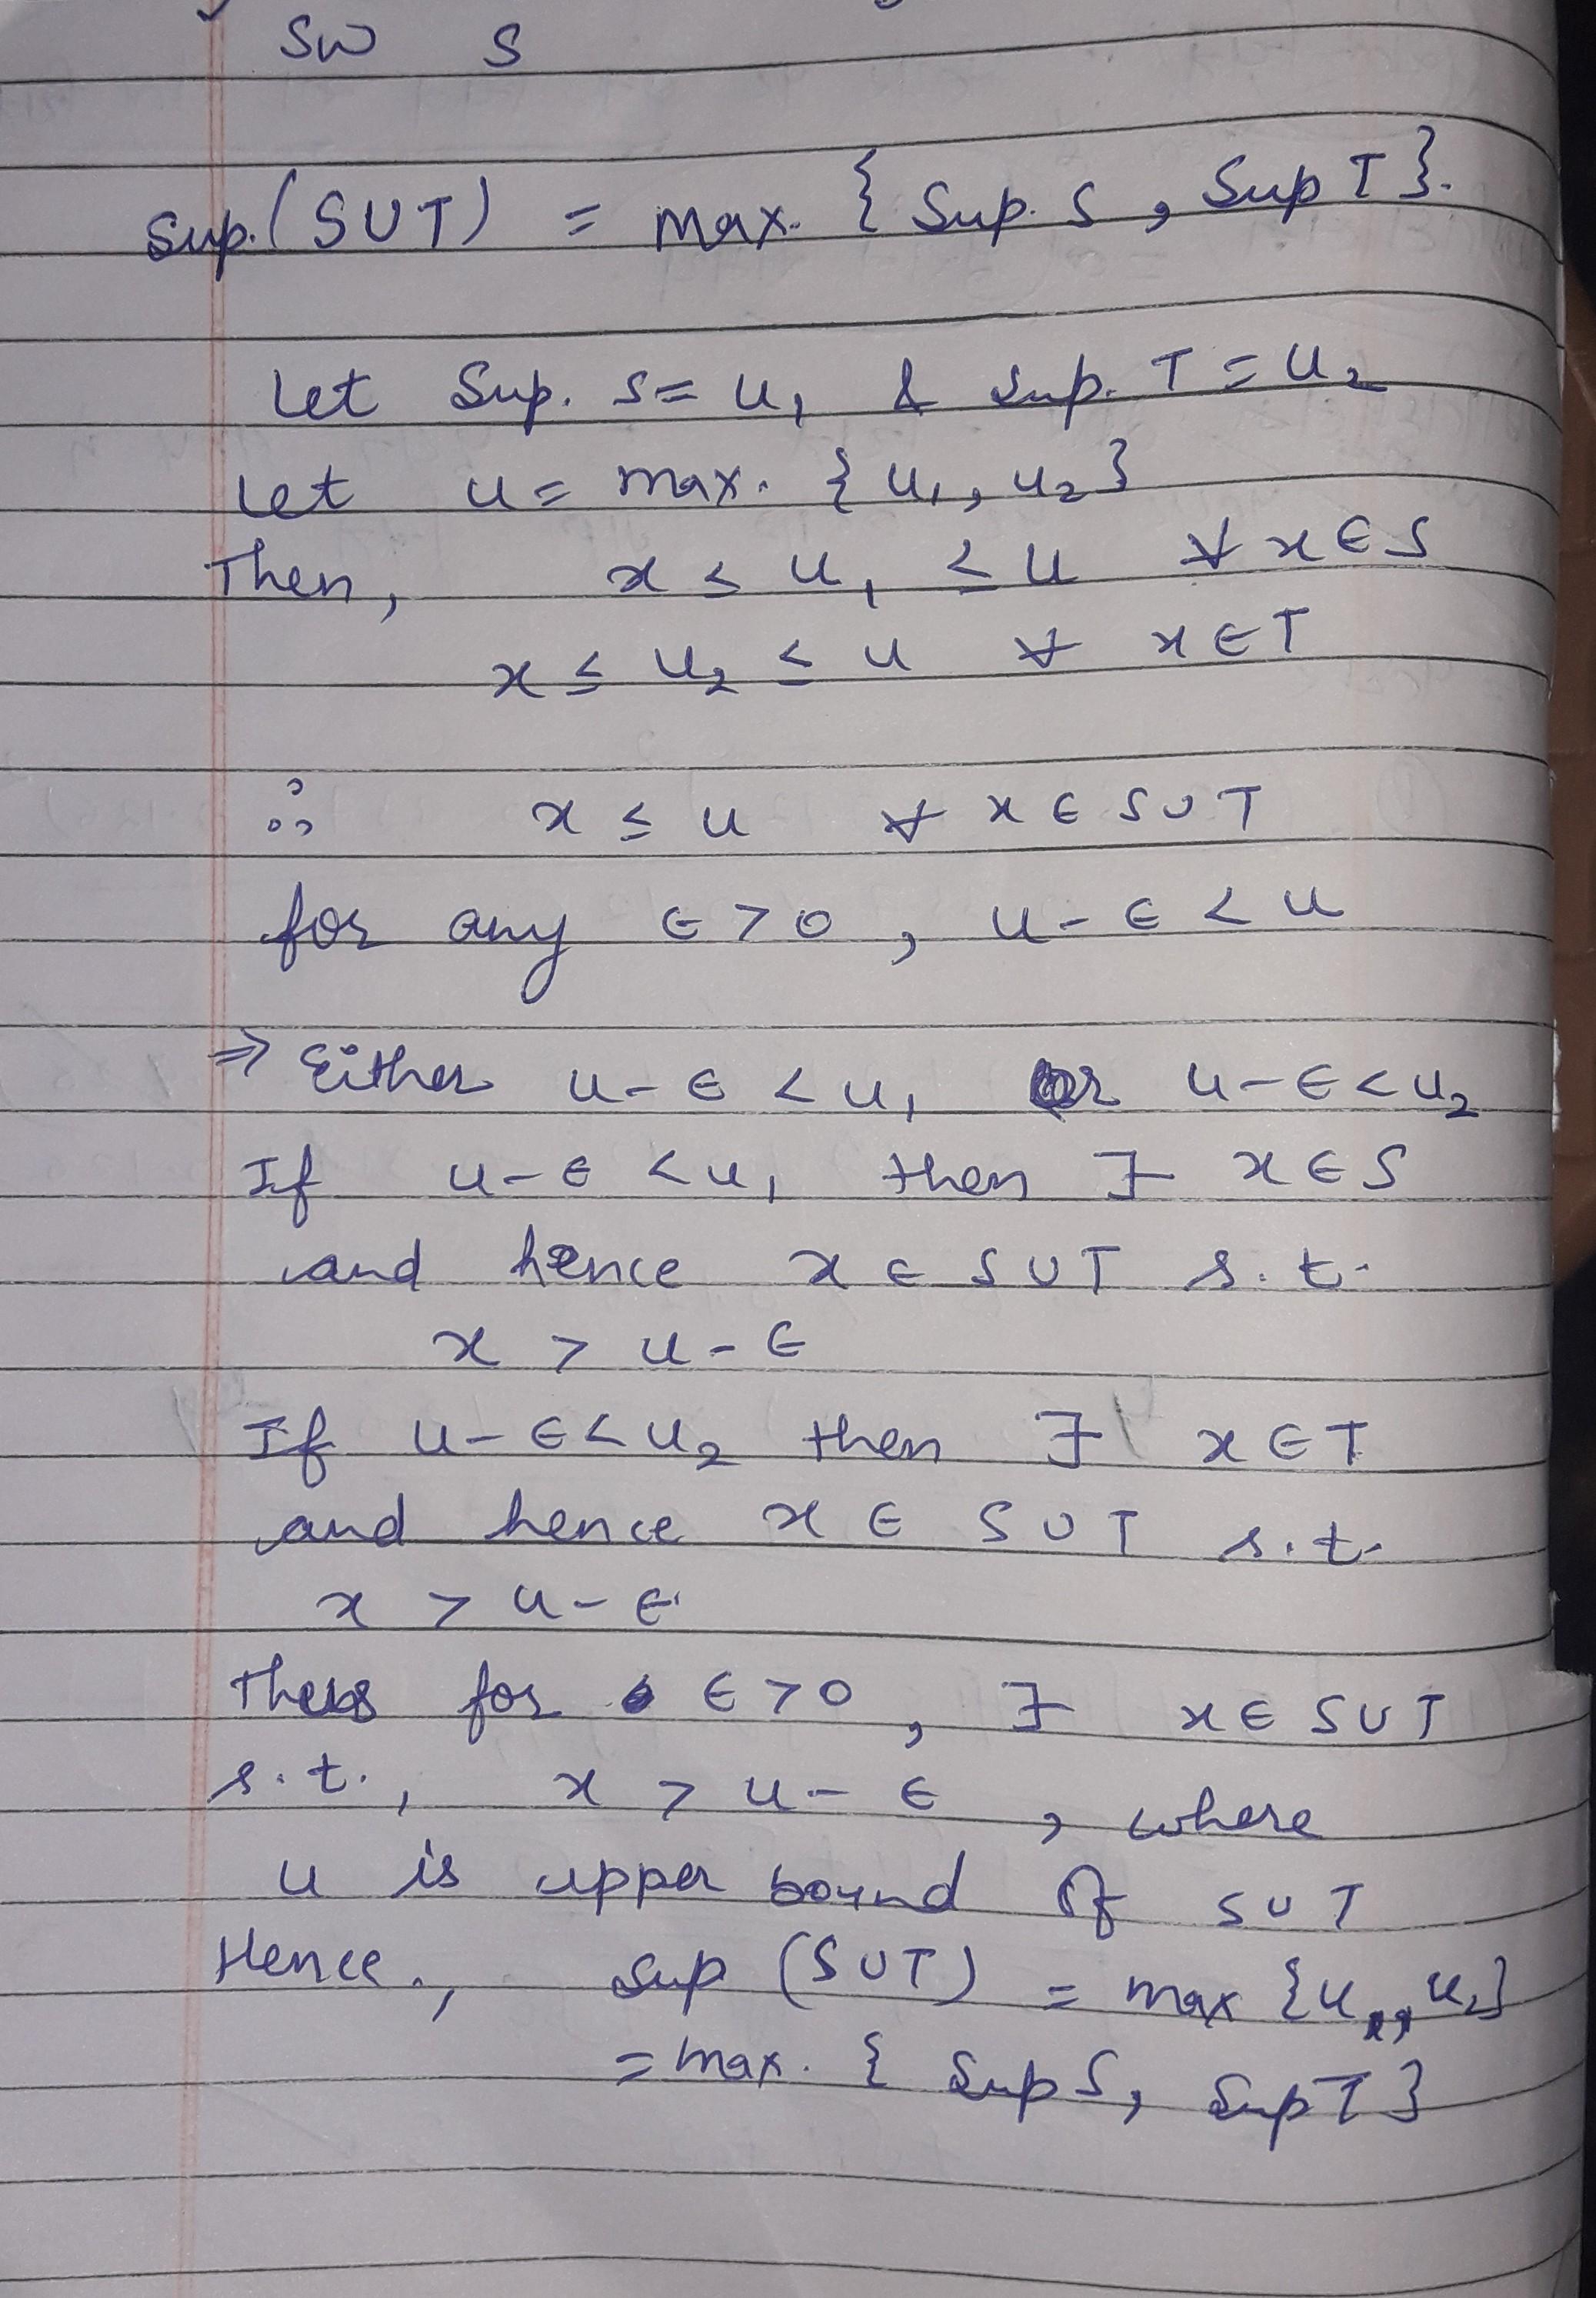 Sup. (SUT) = max. { Sup. S, Sup T}.
Let Sup. S = u₁ & Sup. T = u₂
Let u = max. {u₁, u₂}
Then, x ≤ u₁ ≤ u ∀ x ∈ S
x ≤ u₂ ≤ u ∀ x ∈ T
∴ x ≤ u ∀ x ∈ S ∪ T
for any ∈ > 0, u - ∈ < u
⇒ Either u - ∈ < u₁ or u - ∈ < u₂
If u - ∈ < u₁ then ∃ x ∈ S
and hence x ∈ S ∪ T s.t.
x > u - ∈
If u - ∈ < u₂ then ∃ x ∈ T
and hence x ∈ S ∪ T s.t.
x > u - ∈
for ∈ > 0, ∃ x ∈ S ∪ T
s.t., x > u - ∈, where
u is upper bound of S ∪ T
Hence, Sup (S ∪ T) = max {u₁, u₂}
= max. { Sup S, Sup T }